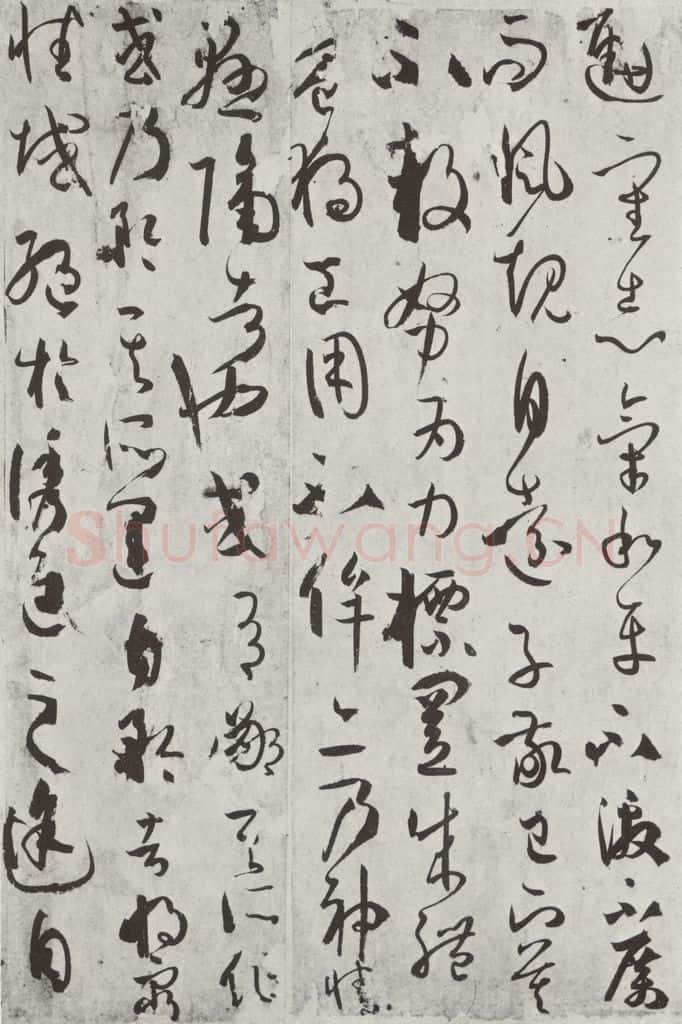 通審志氣和平不激不厲
而風規自遠子敬已下莫
不鼓努為力標置成體
豈獨工用不侔亦乃神情
懸隔者也或有鄙其所作
或乃矜其所運自矜者將窮
性域絕於誘進之途自
Shufawang.CN